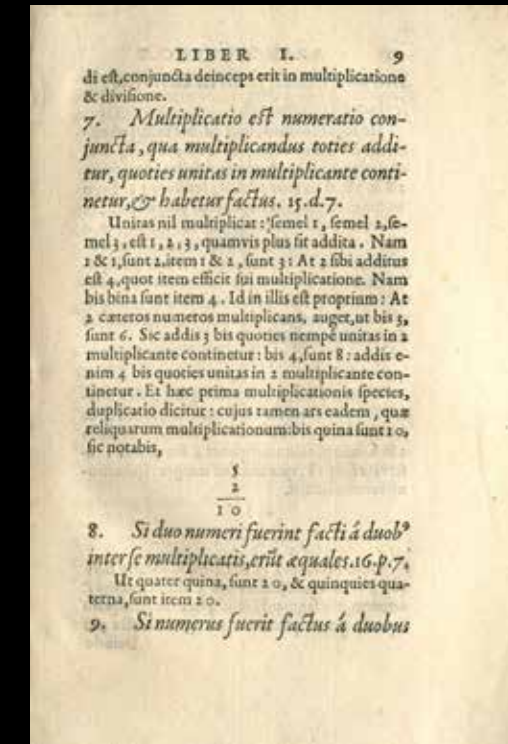 LIBER I. 9
di eſt,conjuncta deinceps erit in multiplicatione
& diviſione.
7. Multiplicatio eſt numeratio con-
juncta, qua multiplicandus toties addi-
tur, quoties unitas in multiplicante conti-
netur,& habetur factus. 15.d.7.
Unitas nil multiplicat: ſemel 1, ſemel 2,ſe-
mel 3, eſt 1, 2, 3, quamvis plus ſit addita. Nam
1 & 1,ſunt 2.item 1 & 2, ſunt 3: At 2 ſibi additus
eſt 4,quot item efficit ſui multiplicatione. Nam
bis bina ſunt item 4. Id in illis eſt proprium: At
2 cæteros numeros multiplicans, auget,ut bis 3,
ſunt 6. Sic addis 3 bis quoties nempe unitas in 2
multiplicante continetur: bis 4,ſunt 8: addis e-
nim 4 bis quoties unitas in 2 multiplicante con-
tinetur. Et hæc prima multiplicationis ſpecies,
duplicatio dicitur: cujus tamen ars eadem, quæ
reliquarum multiplicationum:bis quina ſunt 10,
ſic notabis,
5
2
10
8. Si duo numeri fuerint facti á duobꝰ
inter ſe multiplicatis,erũt æquales.16.p.7.
Ut quater quina, ſunt 20, & quinquies qua-
terna,ſunt item 20.
9. Si numerus fuerit factus á duobus